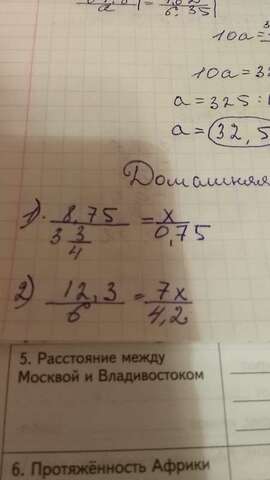 10a=3
10a=32
a=325:
a=32,5
Домашняя
1). 8,75/3 3/4 = x/0,75
2) 12,3/6 = 7x/4,2
5. Расстояние между
Москвой и Владивостоком
6. Протяжённость Африки